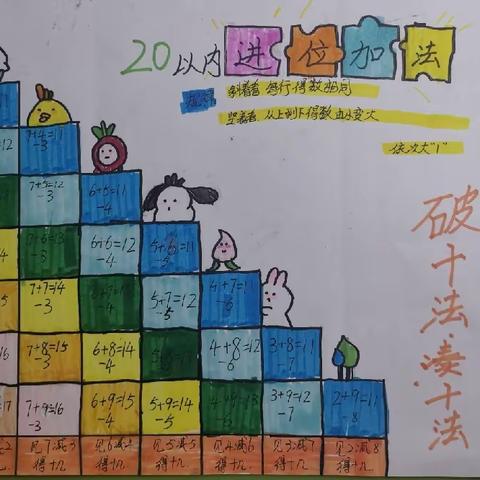 20以内进位加法
斜着看 每行得数相同
竖着看,从上到下得数由小变大
依次大"1"
破十法·凑十法
12 7+4=11
-3
7+5=12 6+5=11
-3 -4
4 7+6=13 6+6=12 5+6=11
-3 -4 -5
5 7+7=14 5+7=12 4+7=11
-3 -4 -5 -6
16 7+8=15 6+8=14 4+8=12 3+8=11
-3 -4 -6 -7
17 7+9=16 6+9=15 5+9=14 4+9=13 3+9=12 2+9=11
-3 -4 -5 -6 -7 8
2 见7减3 见6减4 见5减5 见4减6 见3减7 见2减8
得十几 得十几 得十几 得十几 得十几 得十几